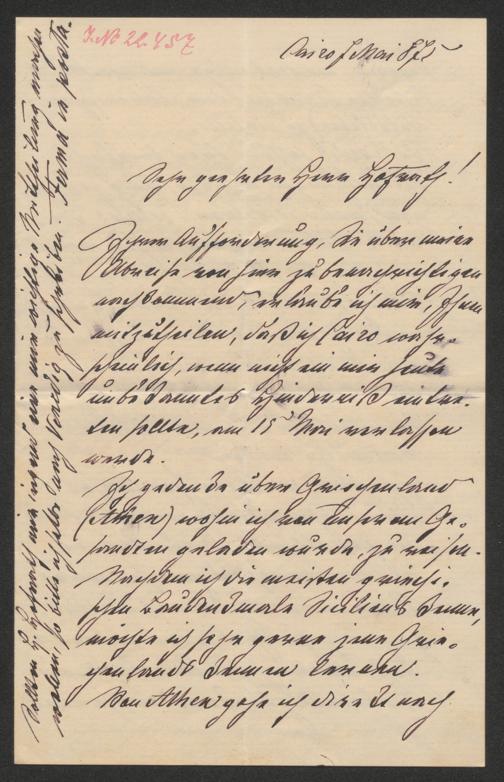 I.N. 22.457
Cairo 7 Mai 875
Sehr geehrter Herr Hofrath!
Ihrer Aufforderung, Sie über meine
Abreise von hier zu benachrichtigen
nachkommend, erlaube ich mir, Ihnen
mitzutheilen, daß ich Cairo wahr-
scheinlich, wenn nicht ein mir heute
unbekanntes Hinderniß eintre-
ten sollte, am 15 Mai verlassen
werde.
Ich gedenke über Griechenland
(Athen) wohin ich von unserem Ge-
sandten geladen wurde, zu reisen.
Nachdem ich die meisten griechi-
schen Baudenkmale Siciliens kenne,
möchte ich sehr gerne jene Grie-
chenlands kennen lernen.
Von Athen gehe ich direkt nach
Sollten H. Hofrath mir irgend eine mir wichtige Mittheilung machen
wollen, so bitte ich selbe nach Venedig zu schreiben. Ferma in posta.